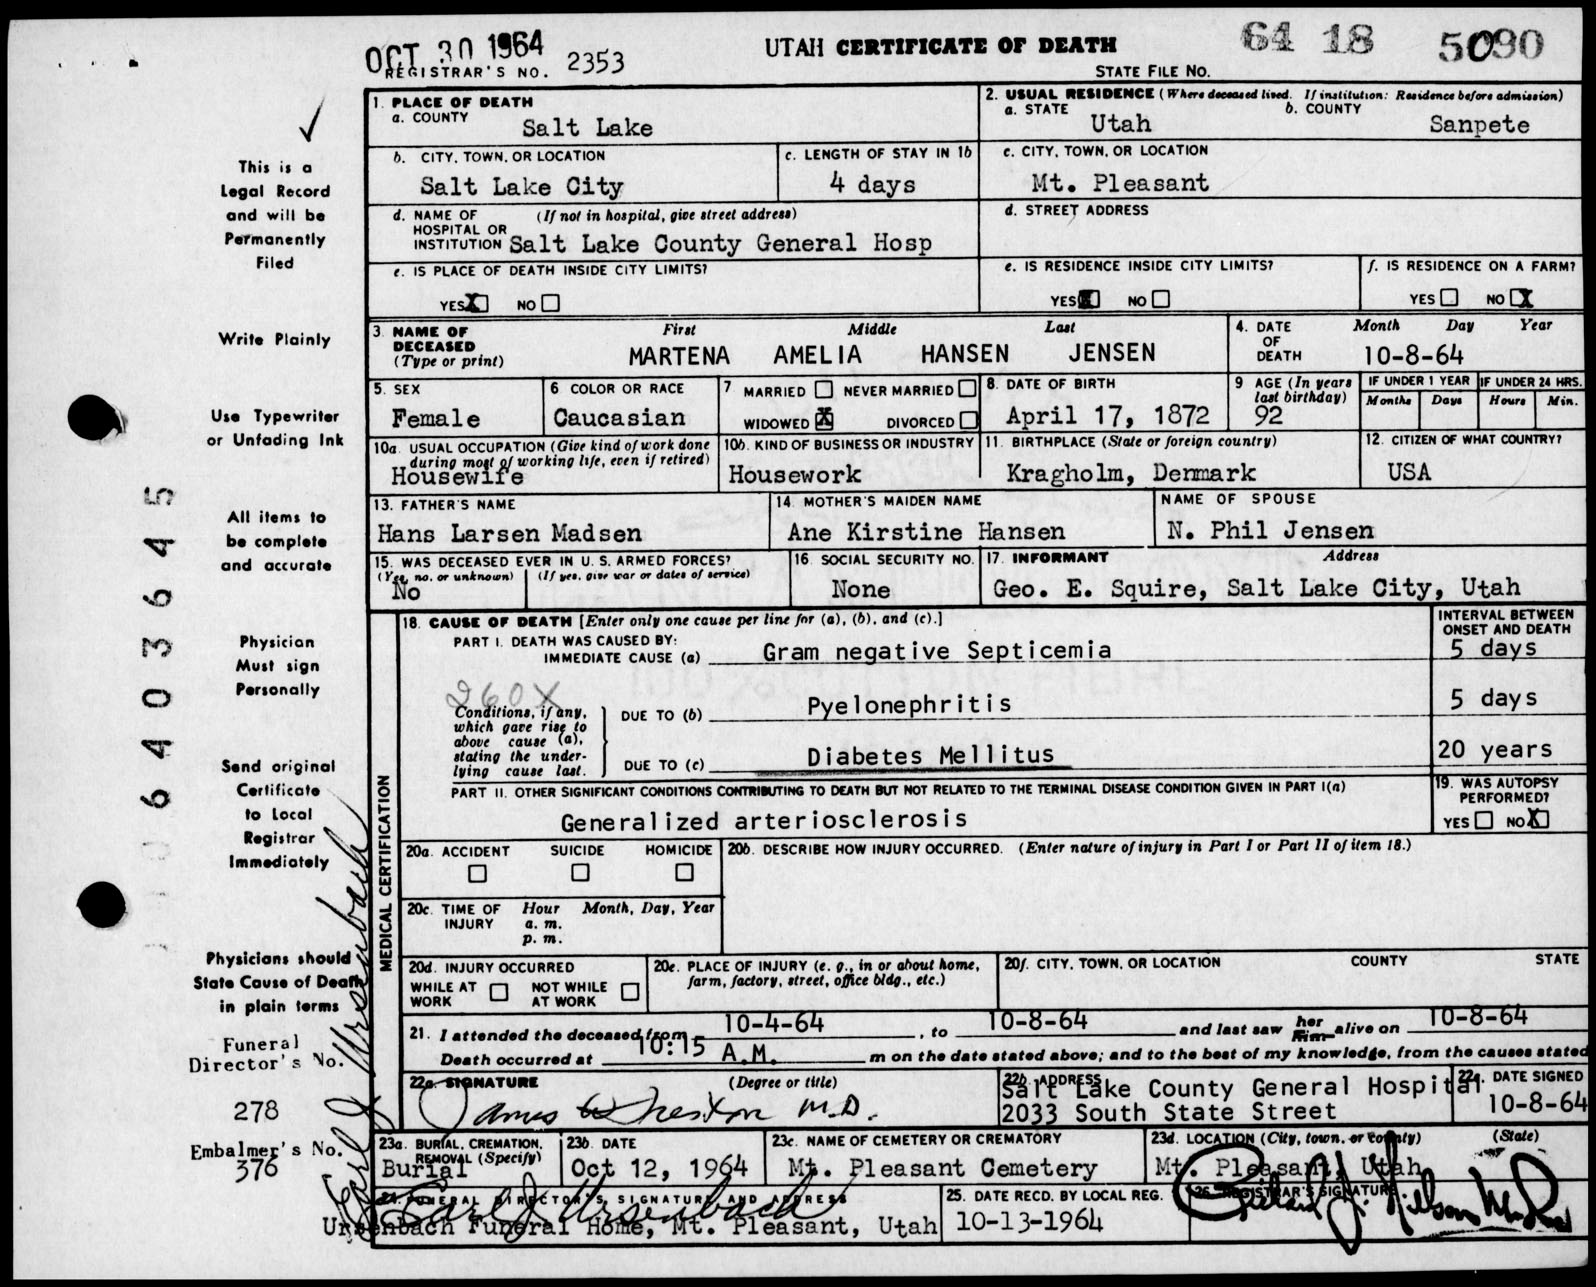 OCT 30 1964
UTAH CERTIFICATE OF DEATH
64 18 5090
REGISTRAR'S NO. 2353
STATE FILE NO.
This is a
Legal Record
and will be
Permanently
Filed
Write Plainly
Use Typewriter
or Unfading Ink
All items to
be complete
and accurate
Physician
Must sign
Personally
Send original
Certificate
to Local
Registrar
Immediately
Physicians should
State Cause of Death
in plain terms
Funeral
Director's No.
278
Embalmer's No.
376
Earl J Ursenbach
6403645
1. PLACE OF DEATH
a. COUNTY
Salt Lake
2. USUAL RESIDENCE (Where deceased lived. If institution: Residence before admission)
a. STATE
Utah
b. COUNTY
Sanpete
b. CITY, TOWN, OR LOCATION
Salt Lake City
c. LENGTH OF STAY IN 1b
4 days
c. CITY, TOWN, OR LOCATION
Mt. Pleasant
d. NAME OF (If not in hospital, give street address)
HOSPITAL OR
INSTITUTION Salt Lake County General Hosp
d. STREET ADDRESS
e. IS PLACE OF DEATH INSIDE CITY LIMITS?
YES X NO
e. IS RESIDENCE INSIDE CITY LIMITS?
YES X NO
f. IS RESIDENCE ON A FARM?
YES NO X
3. NAME OF
DECEASED
(Type or print)
First Middle Last
MARTENA AMELIA HANSEN JENSEN
4. DATE
OF
DEATH
Month Day Year
10-8-64
5. SEX
Female
6 COLOR OR RACE
Caucasian
7 MARRIED NEVER MARRIED
WIDOWED X DIVORCED
8. DATE OF BIRTH
April 17, 1872
9 AGE (In years
last birthday)
92
IF UNDER 1 YEAR
Months Days
IF UNDER 24 HRS.
Hours Min.
10a. USUAL OCCUPATION (Give kind of work done
during most of working life, even if retired)
Housewife
10b. KIND OF BUSINESS OR INDUSTRY
Housework
11. BIRTHPLACE (State or foreign country)
Kragholm, Denmark
12. CITIZEN OF WHAT COUNTRY?
USA
13. FATHER'S NAME
Hans Larsen Madsen
14. MOTHER'S MAIDEN NAME
Ane Kirstine Hansen
NAME OF SPOUSE
N. Phil Jensen
15. WAS DECEASED EVER IN U. S. ARMED FORCES?
(Yes, no, or unknown) (If yes, give war or dates of service)
No
16. SOCIAL SECURITY NO.
None
17. INFORMANT Address
Geo. E. Squire, Salt Lake City, Utah
MEDICAL CERTIFICATION
18. CAUSE OF DEATH [Enter only one cause per line for (a), (b), and (c).]
INTERVAL BETWEEN
ONSET AND DEATH
PART I. DEATH WAS CAUSED BY:
IMMEDIATE CAUSE (a) Gram negative Septicemia
5 days
260X
Conditions, if any,
which gave rise to
above cause (a),
stating the under-
lying cause last.
DUE TO (b) Pyelonephritis
5 days
DUE TO (c) Diabetes Mellitus
20 years
PART II. OTHER SIGNIFICANT CONDITIONS CONTRIBUTING TO DEATH BUT NOT RELATED TO THE TERMINAL DISEASE CONDITION GIVEN IN PART I(a)
Generalized arteriosclerosis
19. WAS AUTOPSY
PERFORMED?
YES NO X
20a. ACCIDENT SUICIDE HOMICIDE
20b. DESCRIBE HOW INJURY OCCURRED. (Enter nature of injury in Part I or Part II of item 18.)
20c. TIME OF INJURY
Hour Month, Day, Year
a. m.
p. m.
20d. INJURY OCCURRED
WHILE AT WORK NOT WHILE AT WORK
20e. PLACE OF INJURY (e. g., in or about home,
farm, factory, street, office bldg., etc.)
20f. CITY, TOWN, OR LOCATION COUNTY STATE
21. I attended the deceased from 10-4-64, to 10-8-64 and last saw her him alive on 10-8-64
Death occurred at 10:15 A.M. m on the date stated above; and to the best of my knowledge, from the causes stated
22a. SIGNATURE (Degree or title)
James W Freston M.D.
22b. ADDRESS
Salt Lake County General Hospital
2033 South State Street
22c. DATE SIGNED
10-8-64
23a. BURIAL, CREMATION,
REMOVAL (Specify)
Burial
23b. DATE
Oct 12, 1964
23c. NAME OF CEMETERY OR CREMATORY
Mt. Pleasant Cemetery
23d. LOCATION (City, town, or county) (State)
Mt. Pleasant, Utah
24. FUNERAL DIRECTOR'S SIGNATURE AND ADDRESS
Earl J Ursenbach
Ursenbach Funeral Home, Mt. Pleasant, Utah
25. DATE RECD. BY LOCAL REG.
10-13-1964
26. REGISTRAR'S SIGNATURE